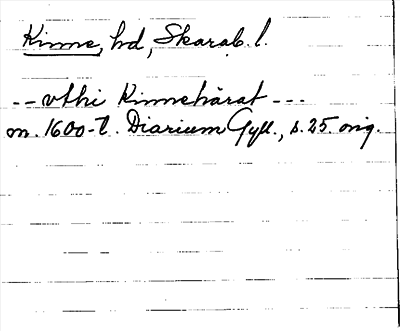 Kinne, hd, Skarab. l.
-- vthi Kinnehärat ---
m. 1600-t. Diarium Gyll., s. 25 orig.